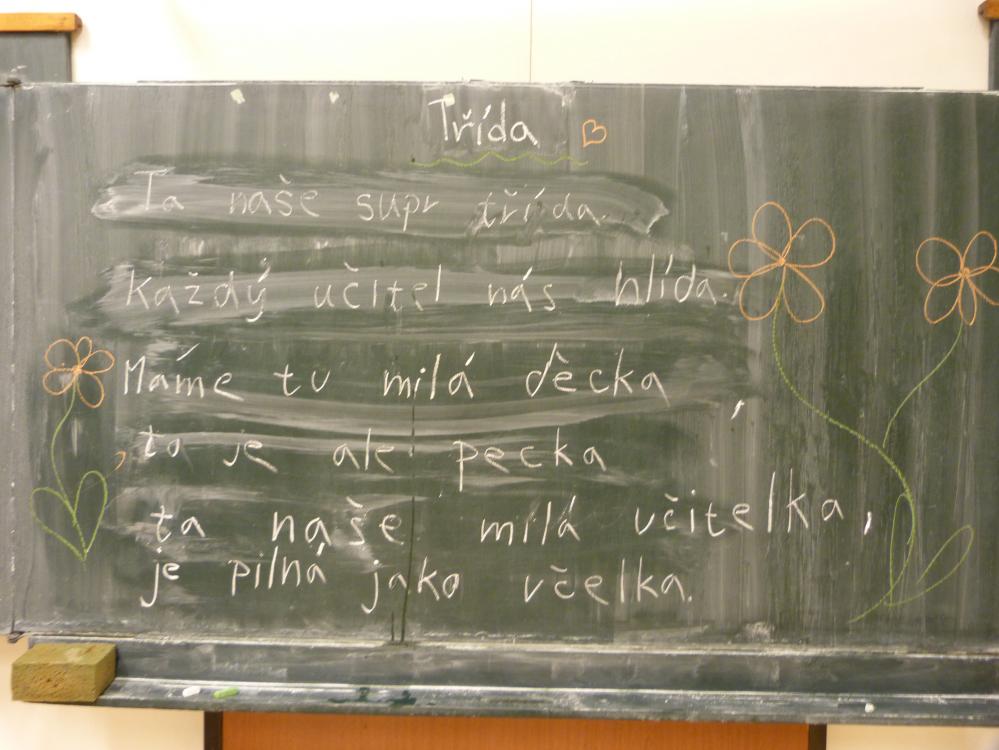 Třída
Ta naše supr třída.
Každý učitel nás hlídá.
Máme tu milá děcka,
to je ale pecka
ta naše milá učitelka,
je pilná jako včelka.